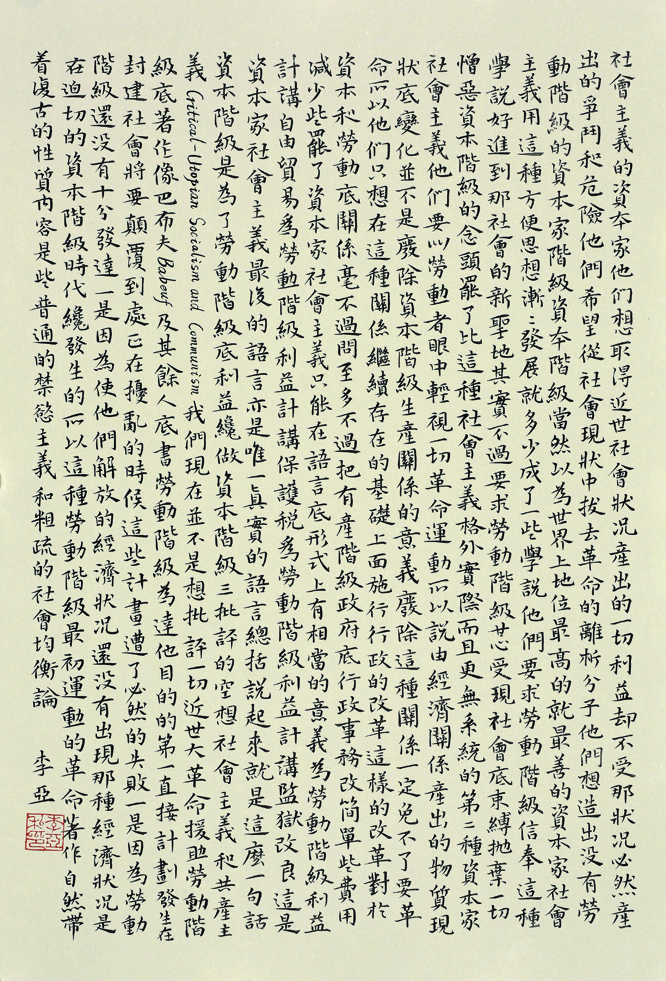 社會主義的資本家他們想取得近世社會狀況產出的一切利益却不受那狀況必然產
出的爭鬥和危險他們希望從社會現狀中拔去革命的離析分子他們想造出没有勞
動階級的資本家階級資本階級當然以為世界上地位最高的就最善的資本家社會
主義用這種方便思想漸〻發展就多少成了一些學說他們要求勞動階級信奉這種
學說好進到那社會的新聖地其實不過要求勞動階級甘心受現社會底束縛拋棄一切
憎惡資本階級的念頭罷了比這種社會主義格外實際而且更無系統的第二種資本家
社會主義他們要以勞動者眼中輕視一切革命運動所以說由經濟關係產出的物質現
狀底變化並不是廢除資本階級生產關係的意義廢除這種關係一定免不了要革
命所以他們只想在這種關係繼續存在的基礎上面施行行政的改革這樣的改革對於
資本和勞動底關係毫不過問至多不過把有產階級政府底行政事務改簡單些費用
減少些罷了資本家社會主義只能在語言底形式上有相當的意義為勞動階級利益
計講自由貿易為勞動階級利益計講保護税為勞動階級利益計講監獄改良這是
資本家社會主義最後的語言亦是唯一真實的語言總括說起來就是這麼一句話
資本階級是為了勞動階級底利益纔做資本階級三批評的空想社會主義和共產主
義 Critical-Utopian Socialism and Communism 我們現在並不是想批評一切近世大革命援助勞動階
級底著作像巴布夫 Babeuf 及其餘人底書勞動階級為達他目的的第一直接計劃發生在
封建社會將要顛覆到處正在擾亂的時候這些計畫遭了必然的失敗一是因為勞動
階級還没有十分發達一是因為使他們解放的經濟狀況還没有出現那種經濟狀況是
在迫切的資本階級時代纔發生的所以這種勞動階級最初運動的革命著作自然帶
着復古的性質内容是些普通的禁慾主義和粗疏的社會均衡論 李亞